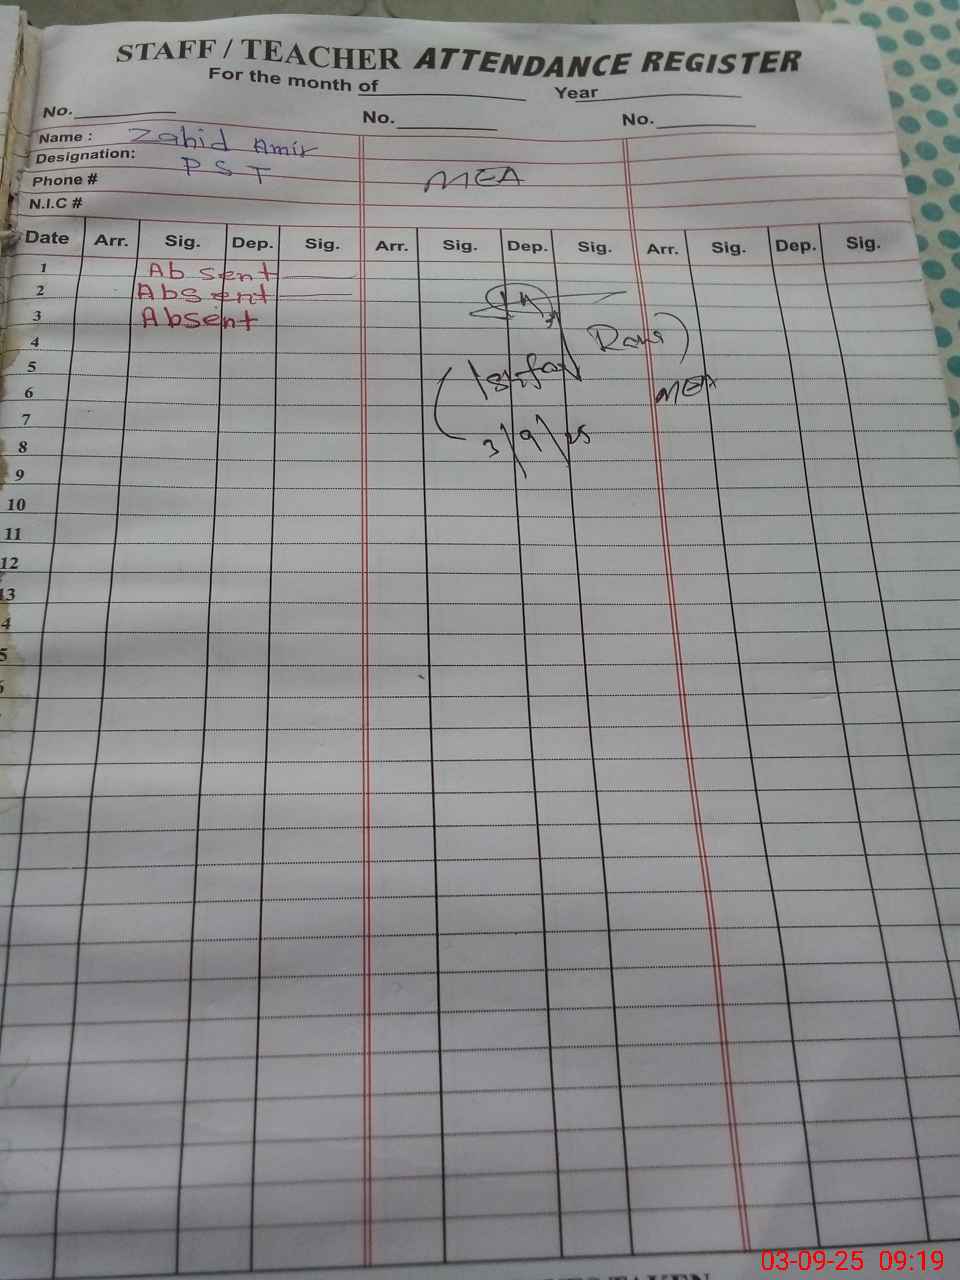 STAFF / TEACHER ATTENDANCE REGISTER
For the month of Year
No. No. No.
Name : Zahid Amir
Designation: PST
Phone # MEA
N.I.C #
Date Arr. Sig. Dep. Sig. Arr. Sig. Dep. Sig. Arr. Sig. Dep. Sig.
1 Absent
2 Absent
3 Absent
4
5
6 MEA
7
8 3/9/25
9
10
11
12
13
4
5
6
03-09-25 09:19